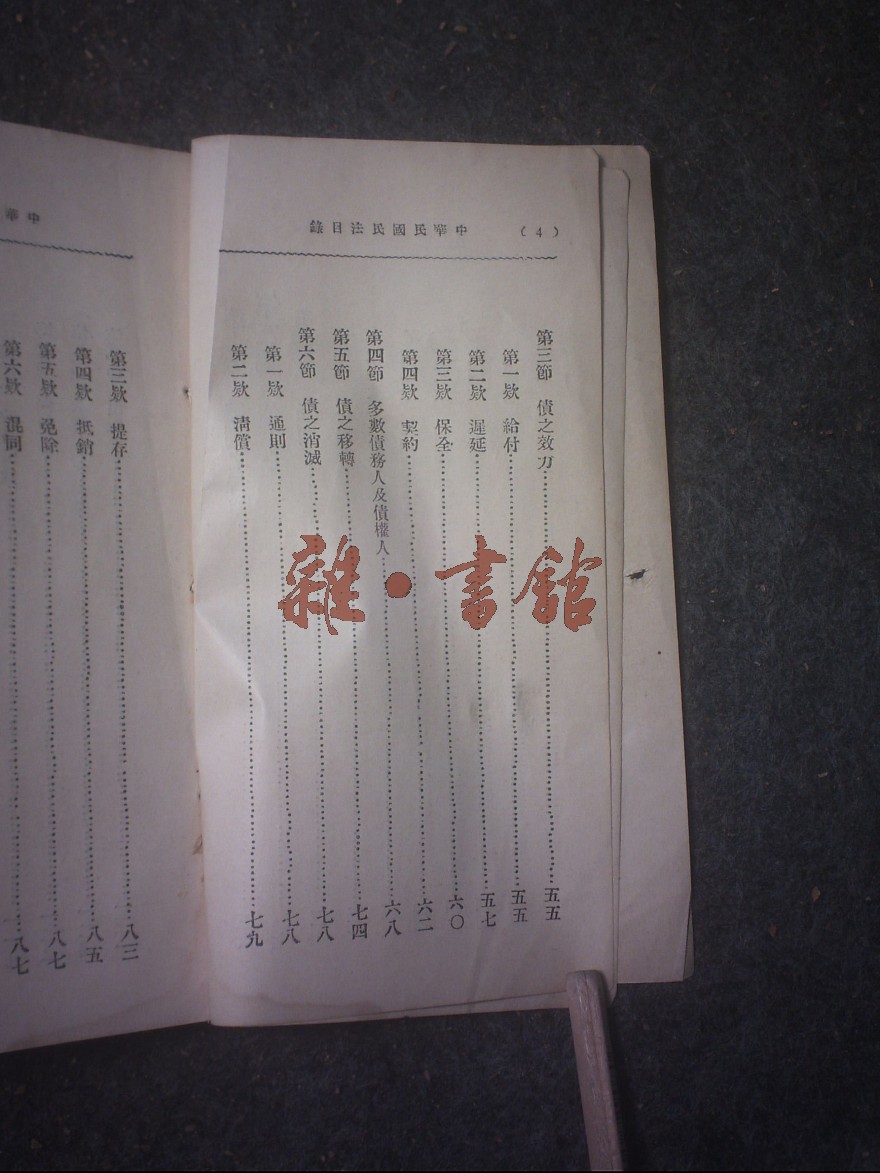 中華民國民法目錄 (4)
第三節 債之效力 五五
第一欵 給付 五五
第二欵 遲延 五七
第三欵 保全 六〇
第四欵 契約 六二
第四節 多數債務人及債權人 六八
第五節 債之移轉 七四
第六節 債之消滅 七八
第一欵 通則 七八
第二欵 清償 七九
中華
第三欵 提存 八三
第四欵 抵銷 八五
第五欵 免除 八七
第六欵 混同 八七
雜·書館